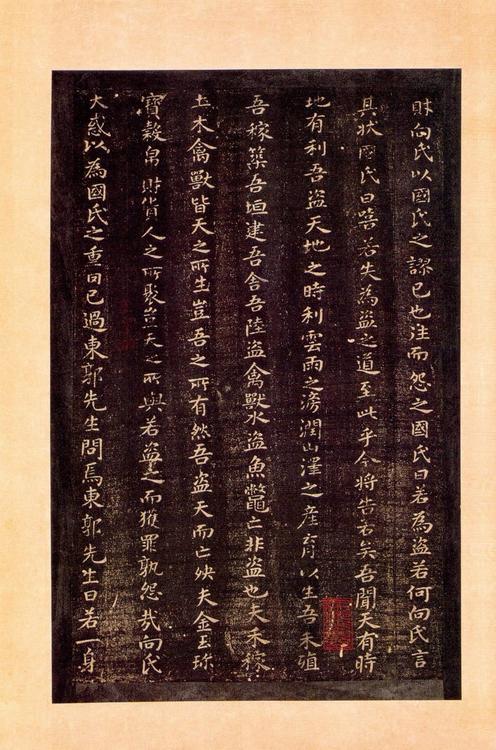 財向氏以國氏之謬己也往而怨之國氏曰若為盜若何向氏言
其狀國氏曰嘻若失為盜之道至此乎今將告若矣吾聞天有時
地有利吾盜天地之時利雲雨之滂潤山澤之產育以生吾禾殖
吾稼築吾垣建吾舍吾陸盜禽獸水盜魚鼈亡非盜也夫禾稼
土木禽獸皆天之所生豈吾之所有然吾盜天而亡殃夫金玉珎
寶穀帛財貨人之所聚豈天之所與若盜之而獲罪孰怨哉向氏
大惑以為國氏之重罔已過東郭先生問焉東郭先生曰若一身